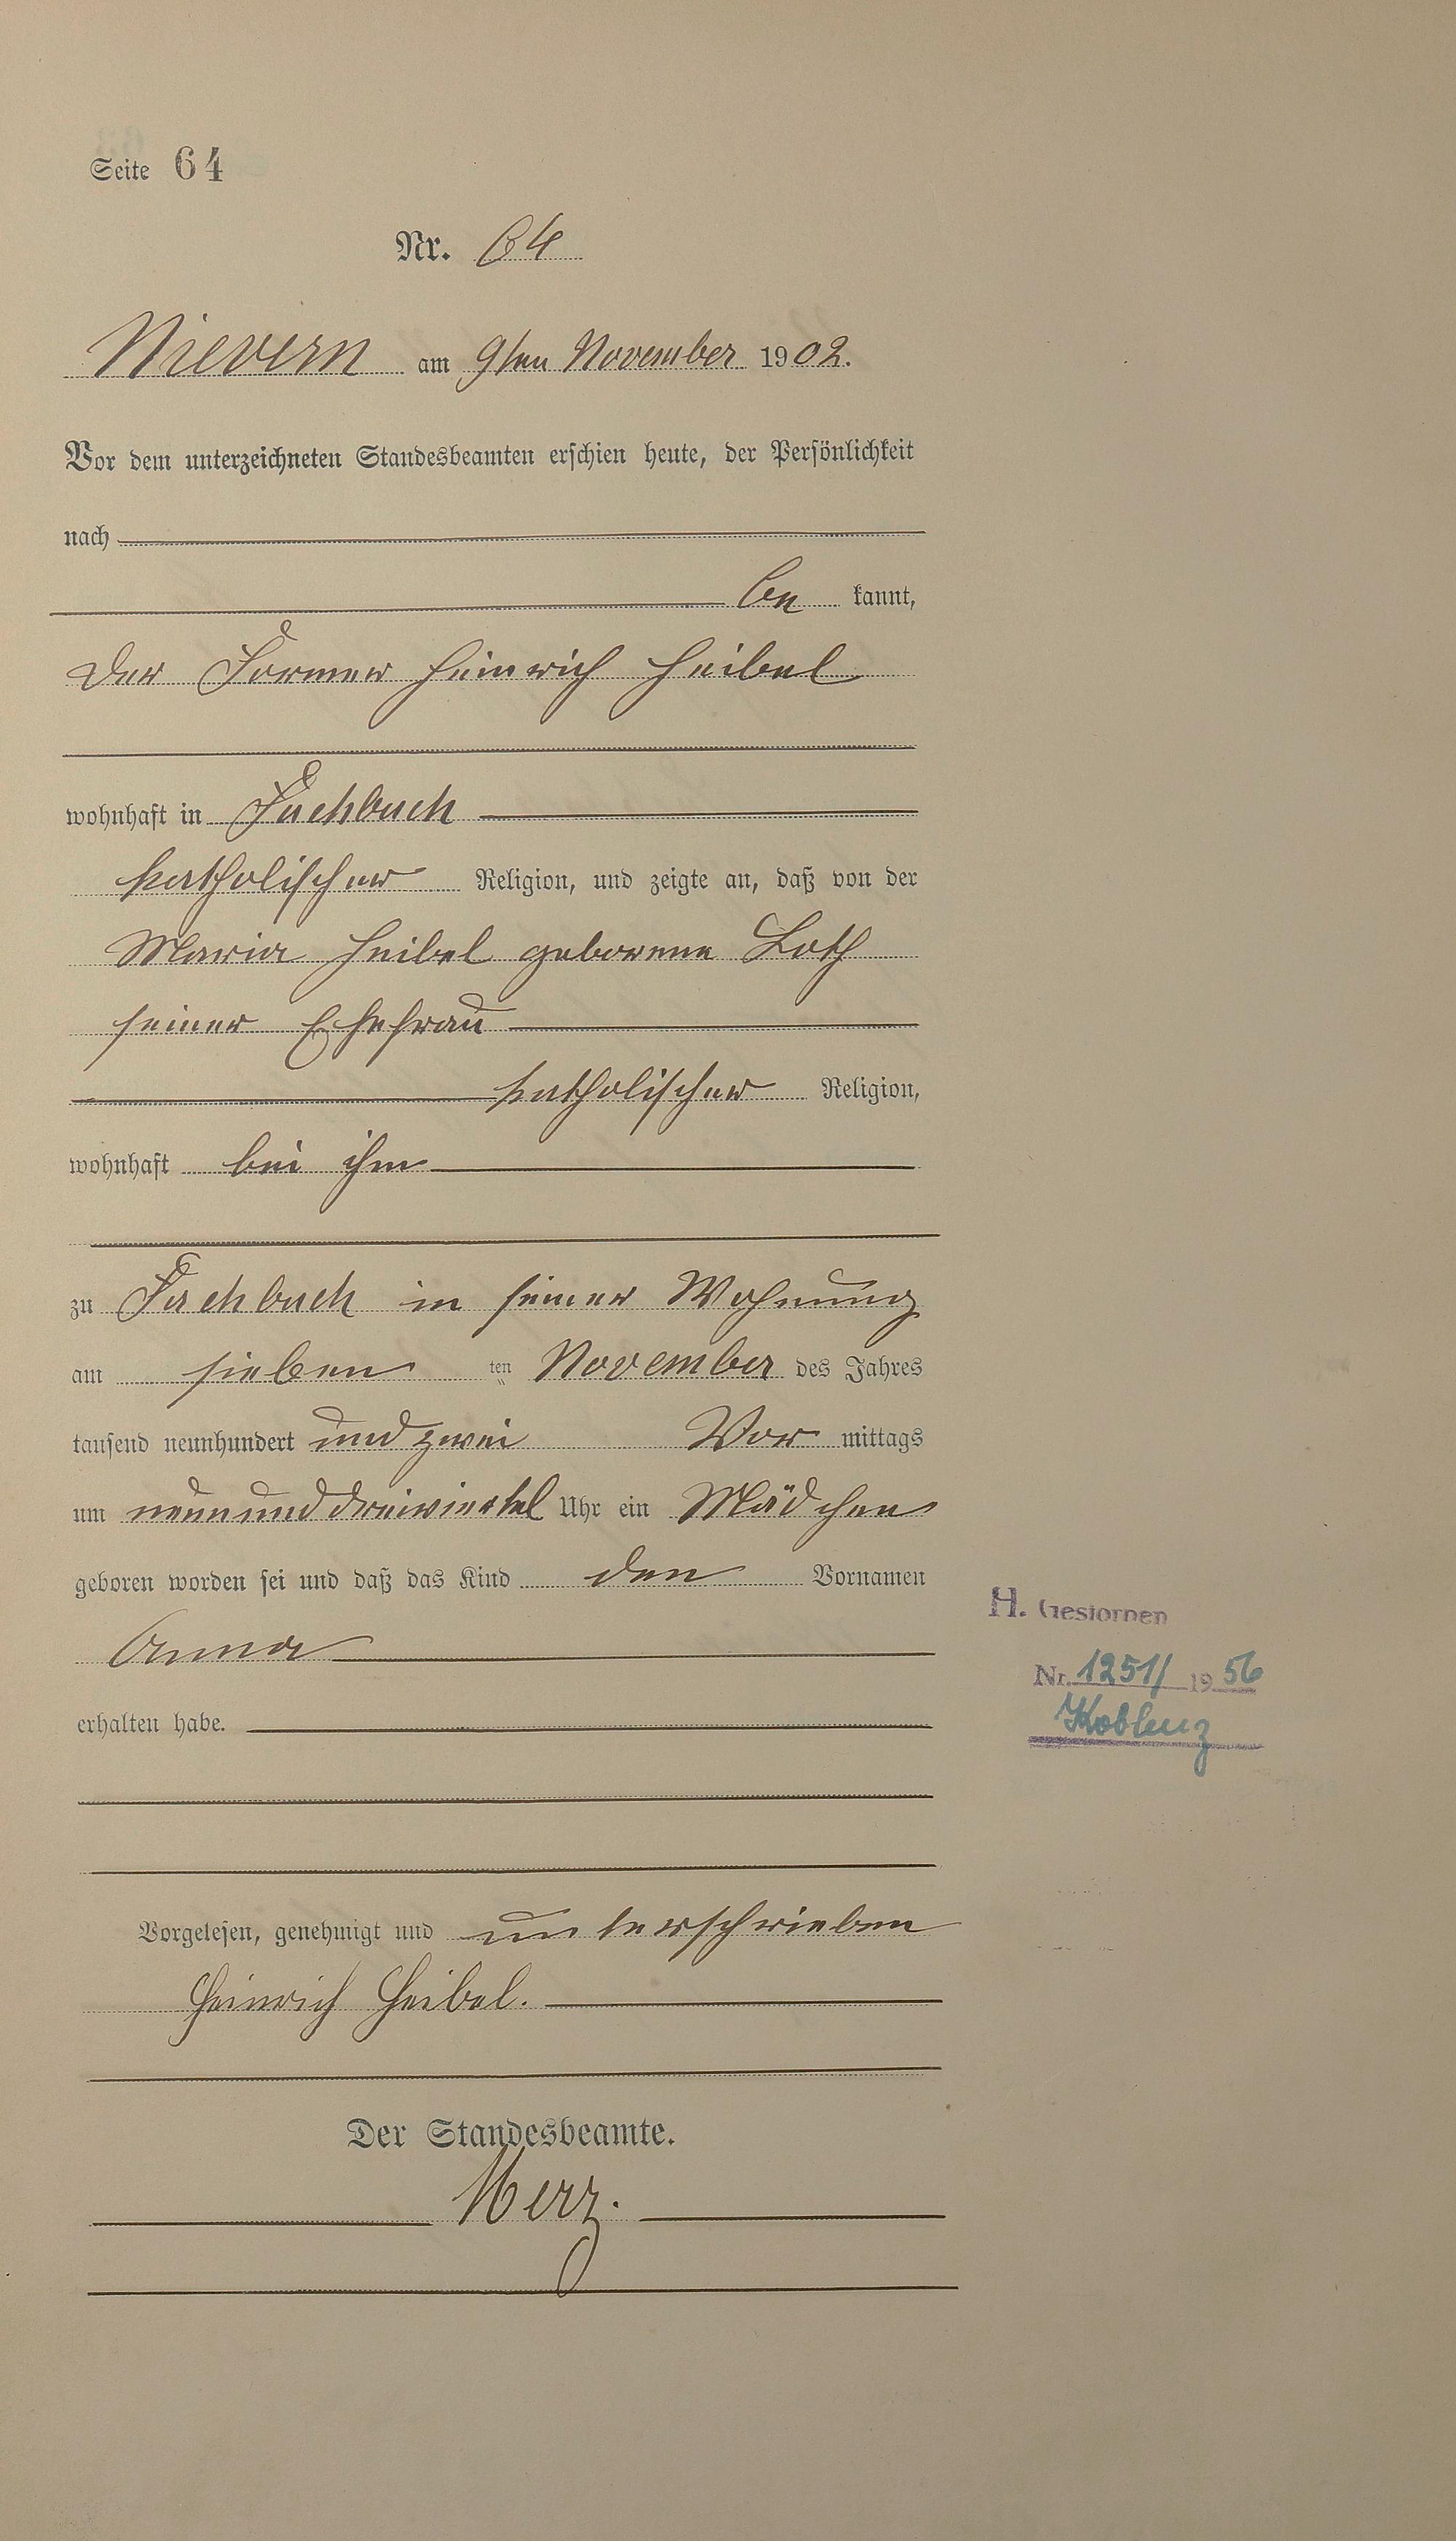 Seite 64
Nr. 64
Nievern am 9ten November 1902.
Vor dem unterzeichneten Standesbeamten erschien heute, der Persönlichkeit
nach
be kannt,
der Former Heinrich Heibel
wohnhaft in Fachbach
katholischer Religion, und zeigte an, daß von der
Maria Heibel geborene Loth
seiner Ehefrau
katholischer Religion,
wohnhaft bei ihm
zu Fachbach in seiner Wohnung
am sieben ten November des Jahres
tausend neunhundert und zwei Vor mittags
um neun und dreiviertel Uhr ein Mädchen
geboren worden sei und daß das Kind den Vornamen
Anna
H. Gestorben
Nr. 1251/ 1956
Koblenz
erhalten habe.
Vorgelesen, genehmigt und unterschrieben
Heinrich Heibel.
Der Standesbeamte.
Merz.